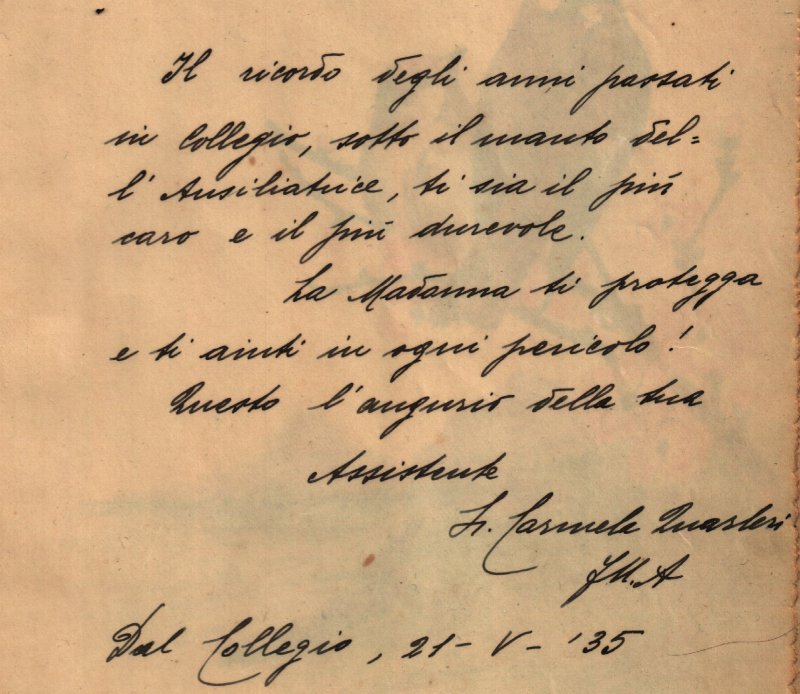 Il ricordo degli anni passati
in Collegio, sotto il manto del=
l'Ausiliatrice, ti sia il più
caro e il più durevole.
La Madonna ti protegga
e ti aiuti in ogni pericolo!
Questo l'augurio della tua
Assistente
Sr. Carmela
F.M.A
Dal Collegio, 21-V-'35